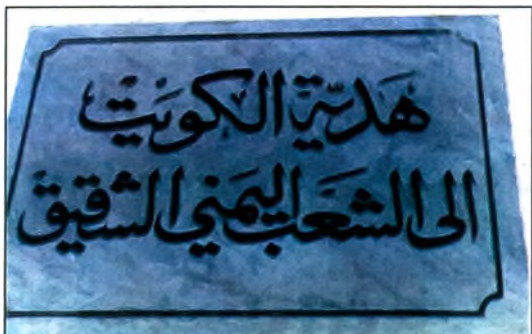 هَديّة الكويَت
الى الشعَب اليمَني الشقيق